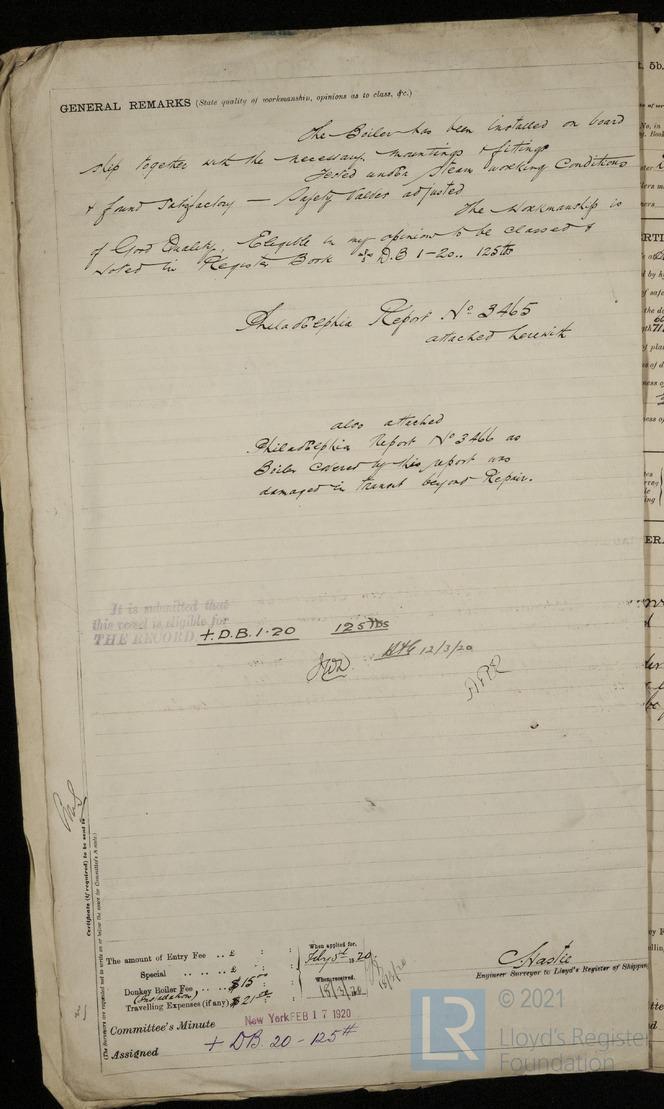 GENERAL REMARKS (State quality of workmanship, opinions as to class, &c.)
The Boiler has been installed on board
ship together with the necessary mountings & fittings
Tested under Steam working Conditions
& found satisfactory — Safety Valves adjusted
The Workmanship is
of Good Quality. Eligible in my opinion to be classed &
Noted in Register Book as D.B 1-20.. 125 lbs
Philadelphia Report No 3465
attached herewith
also attached
Philadelphia Report No 3466 as
Boiler covered by this report was
damaged in transit beyond Repair.
It is submitted that
this vessel is eligible for
THE RECORD + D.B. 1.20 125 lbs
12/3/20
Certificate (if required) to be sent to
(The Surveyors are requested not to write on or below the space for Committee's Minute.)
The amount of Entry Fee .. £ : :
Special .. .. .. £ : :
Donkey Boiler Fee $15.00
(Installation)
Travelling Expenses (if any) $21.00
When applied for,
Feby 5th 1920
When received,
18/3/20
18/3/20
Engineer Surveyor to Lloyd's Register of Shipping
Committee's Minute New York FEB 17 1920
Assigned + DB. 20 - 125 #
LR © 2021
Lloyd's Register
Foundation